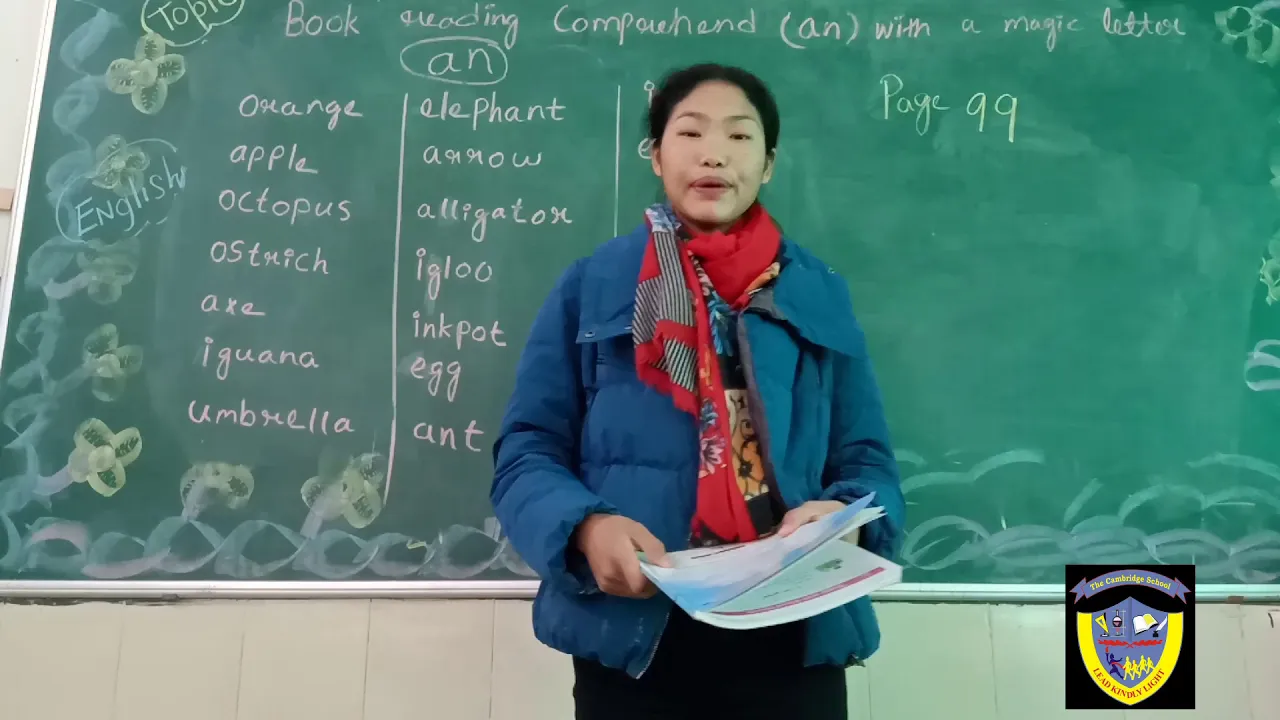 Topic
Book reading Comprehend (an) with a magic letter
an
English
orange
apple
octopus
ostrich
axe
iguana
umbrella
elephant
arrow
alligator
igloo
inkpot
egg
ant
Page 99
The Cambridge School
LEAD KINDLY LIGHT